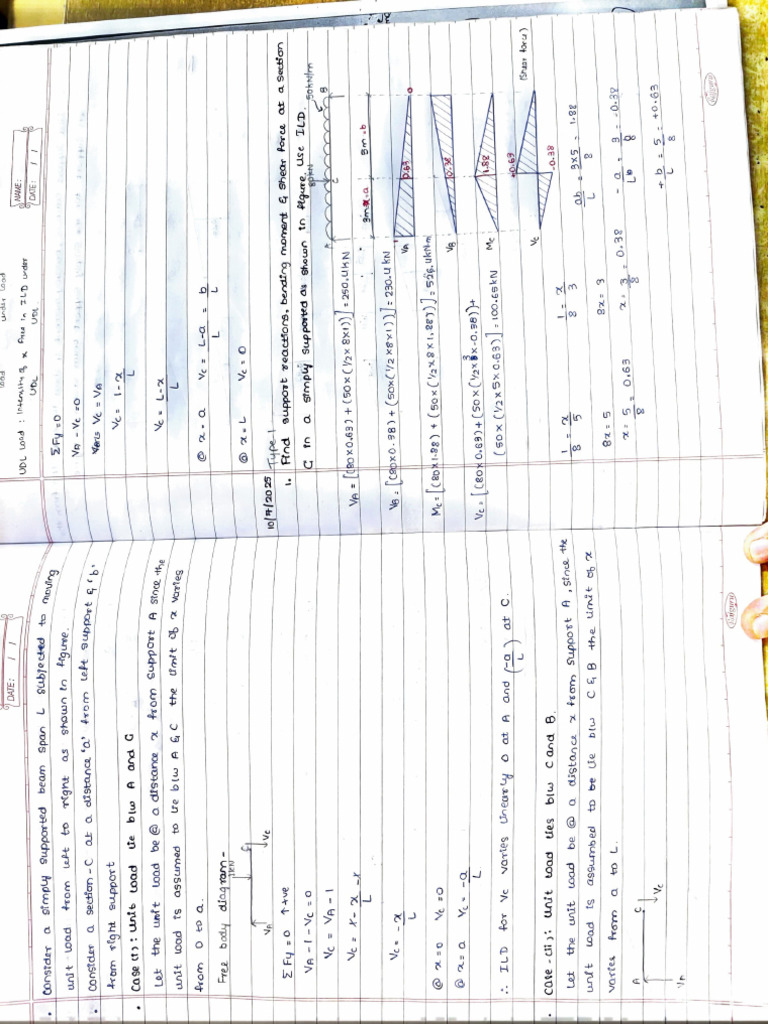 DATE: / /
• Consider a simply supported beam span L subjected to moving
unit load from left to right as shown in figure.
• Consider a section-C at a distance 'a' from left support & 'b'
from right support
• Case (i): Unit load lie b/w A and C
Let the unit load be @ a distance x from support A since the
unit load is assumed to lie b/w A & C the limit of x varies
from 0 to a.
Free body diagram-
1KN
C
VA
Vc
Σ Fy = 0 ↑+ve
VA - 1 - Vc = 0
Vc = VA - 1
Vc = - x/L
@ x=0 Vc = 0
@ x=a Vc = -a/L
∴ ILD for Vc varies linearly 0 at A and (-a/L) at C.
• Case-(ii): Unit load lies b/w C and B.
Let the unit load be @ a distance x from support A, since the
unit load is assumbed to be lie b/w C & B the limit of x
varies from a to L.
A
C
VA
Vc
NAME:
DATE: / /
load under load
UDL load : Intensity of x Area in ILD under
UDL UDL
ΣFy = 0
VA - Vc = 0
Vc = VA
Vc = 1-x/L
Vc = L-x/L
@ x=a Vc = L-a/L = b/L
@ x=L Vc = 0
10/7/2025 Type-1
1. Find support reactions, bending moment & shear force at a section
C in a simply supported as shown in figure. Use ILD.
80KN
50KN/m
A
C
B
3m=a
5m=b
VA = [(80×0.63) + (50×(1/2×8×1))] = 250.4KN
VA
1
0.63
0
VB = [(80×0.38) + (50×(1/2×8×1))] = 230.4KN
VB
0.38
Mc = [(80×1.88) + (50×(1/2×8×1.88))] = 526.4KN.m
Mc
1.88
Vc = [(80×0.63) + (50×(1/2×3×-0.38)) +
(50×(1/2×5×0.63))] = 100.65KN
Vc
+0.63
-0.38
(Shear force)
1/8 = x/5
8x = 5
x = 5/8 = 0.63
1/8 = x/3
8x = 3
x = 3/8 = 0.38
ab/L = 3×5/8 = 1.88
-a/L = 3/8 = -0.38
+b/L = 5/8 = +0.63